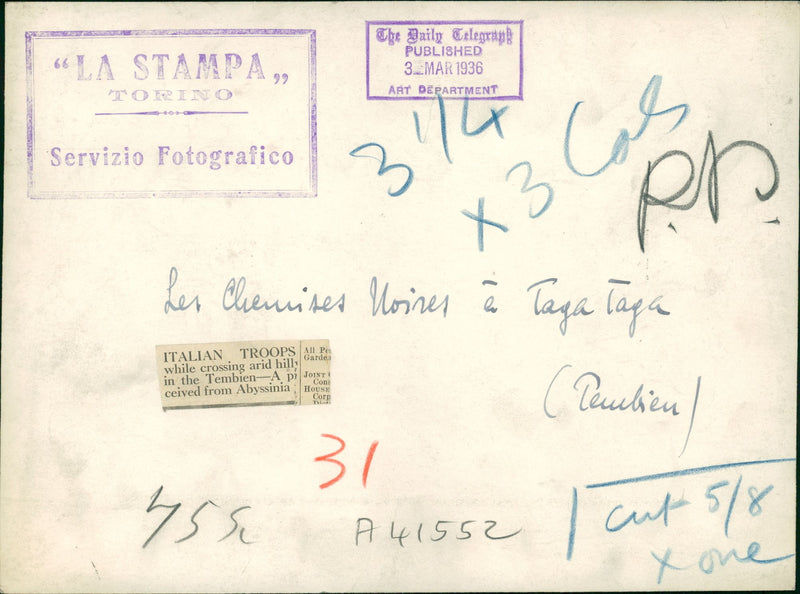 „LA STAMPA„
TORINO
Servizio Fotografico
The Daily Telegraph
PUBLISHED
3 MAR 1936
ART DEPARTMENT
3 1/4
x 3 Cols
P.P.
Les Chemises Noires à Taga Taga
(Tembien)
ITALIAN TROOPS
while crossing arid hill
in the Tembien—A p
ceived from Abyssinia
All Pe
Garde
JOINT
Con
HOUSE
Corp
31
A41552
cut 5/8
x one